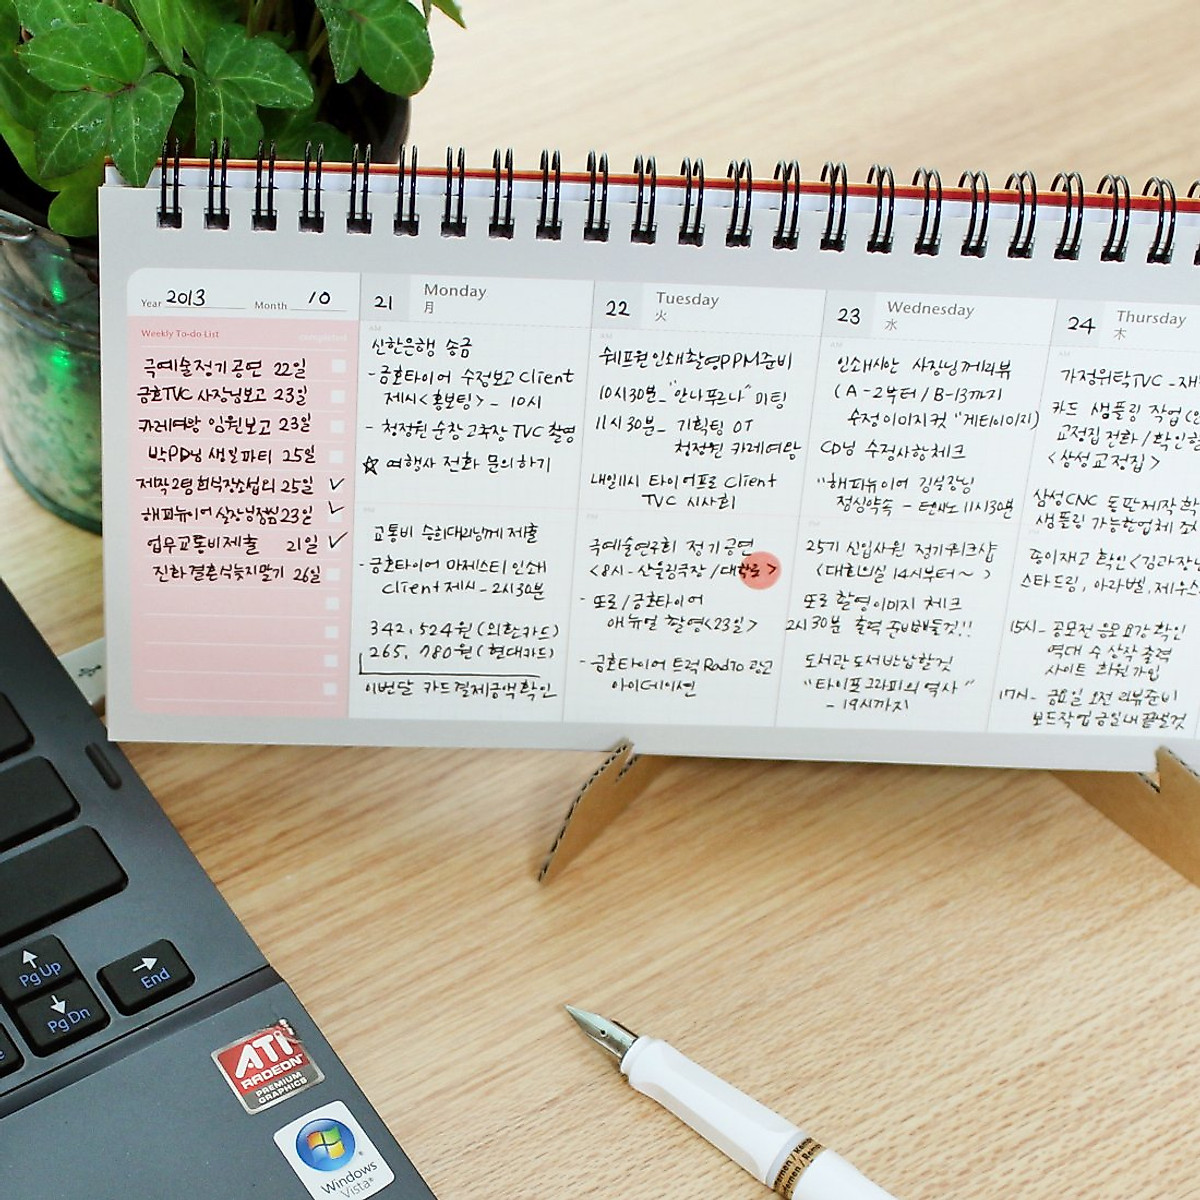 Year 2013 Month 10
Weekly To-do List
극예술정기공연 22일
금호TVC 사장님보고 23일
카레여왕 임원보고 23일
박PD님 생일파티 25일
제작2팀 회식장소섭외 25일
해피뷰이어 실장님점심 23일
업무교통비제출 21일
진화결혼식잊지말기 26일
21 Monday
月
신한은행 송금
- 금호타이어 수정보고 Client
제시<홍보팀> - 10시
- 청정원 순창고추장 TVC 촬영
☆ 여행사 전화 문의하기
교통비 승희대리님께 제출
- 금호타이어 마제스티 인쇄
Client 제시 - 2시30분
342,524원(외환카드)
265,780원(현대카드)
이번달 카드결제금액확인
22 Tuesday
火
쉐프원인쇄촬영PPM준비
10시30분_ "안나푸르나" 미팅
11시30분_ 기획팀 OT
청정원 카레여왕
내일11시 타이어프로 Client
TVC 시사회
극예술연구회 정기공연
<8시- 산울림극장 /대학로>
- 또로/금호타이어
애뉴얼 촬영<23일>
- 금호타이어 트럭 Radio 광고
아이데이션
23 Wednesday
水
인쇄시안 사장님께리뷰
(A-2부터/B-13까지
수정이미지컷 "게티이미지)
CD님 수정사항체크
"해피뷰이어 김실장님
점심약속 - 11시30분
25기 신입사원 정기워크샵
(대회의실 14시부터~ )
또로 촬영이미지 체크
2시30분 출력 준비해둘것!!
도서관도서반납할것
"타이포그라피의 역사"
- 19시까지
24 Thursday
木
가정위탁TVC -재
카드 샘플링 작업
교정집 전화/확인
<삼성교정집>
삼성CNC 동판제작
샘플링 가능한업체
종이재고 확인<김과장님
스타드림, 아라벨, 제우스
15시_ 공모전 응모요강 확인
역대 수상작 출력
사이트 회원가입
17시_ 금요일 오전 리뷰준비
보드작업 금일내 끝낼것
Pg Up
Pg Dn
End
ATI
RADEON
PREMIUM
GRAPHICS
Windows
Vista